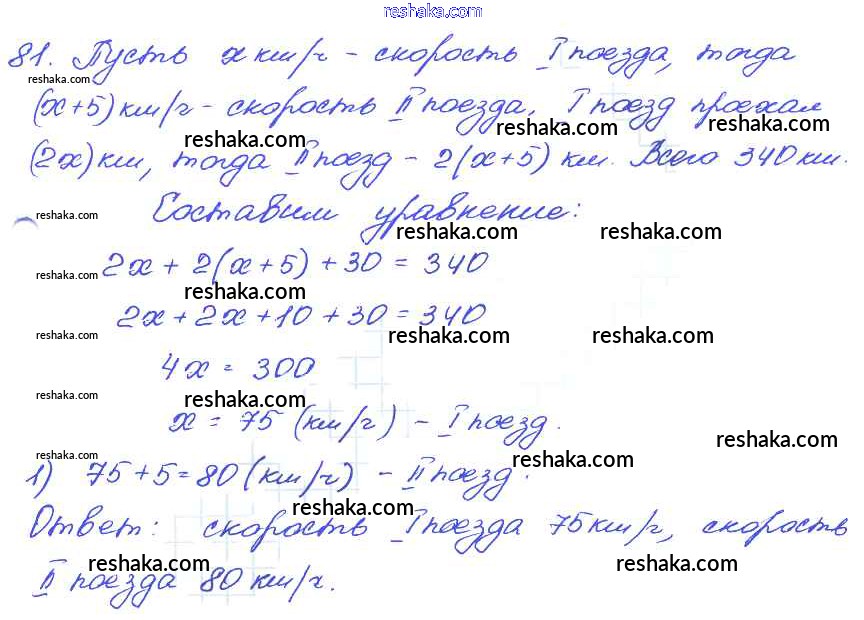 reshaka.com
81. Пусть x км/ч - скорость I поезда, тогда
reshaka.com
(x+5) км/ч - скорость II поезда. I поезд проехал
reshaka.com reshaka.com reshaka.com
(2x) км, тогда II поезд - 2(x+5) км. Всего 340 км.
reshaka.com
Составим уравнение:
reshaka.com reshaka.com reshaka.com
2x + 2(x+5) + 30 = 340
reshaka.com reshaka.com
2x + 2x + 10 + 30 = 340
reshaka.com reshaka.com reshaka.com
4x = 300
reshaka.com reshaka.com
x = 75 (км/ч) - I поезд.
reshaka.com reshaka.com reshaka.com
1) 75+5=80 (км/ч) - II поезд.
reshaka.com
Ответ: скорость I поезда 75 км/ч, скорость
reshaka.com reshaka.com
II поезда 80 км/ч.